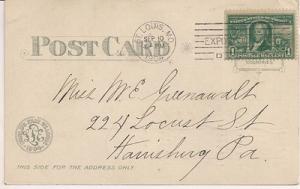 POST CARD
ST. LOUIS, MO.
SEP 10
1904
Miss M E Greenawalt
224 Locust St
Harrisburg Pa.
THIS SIDE FOR THE ADDRESS ONLY